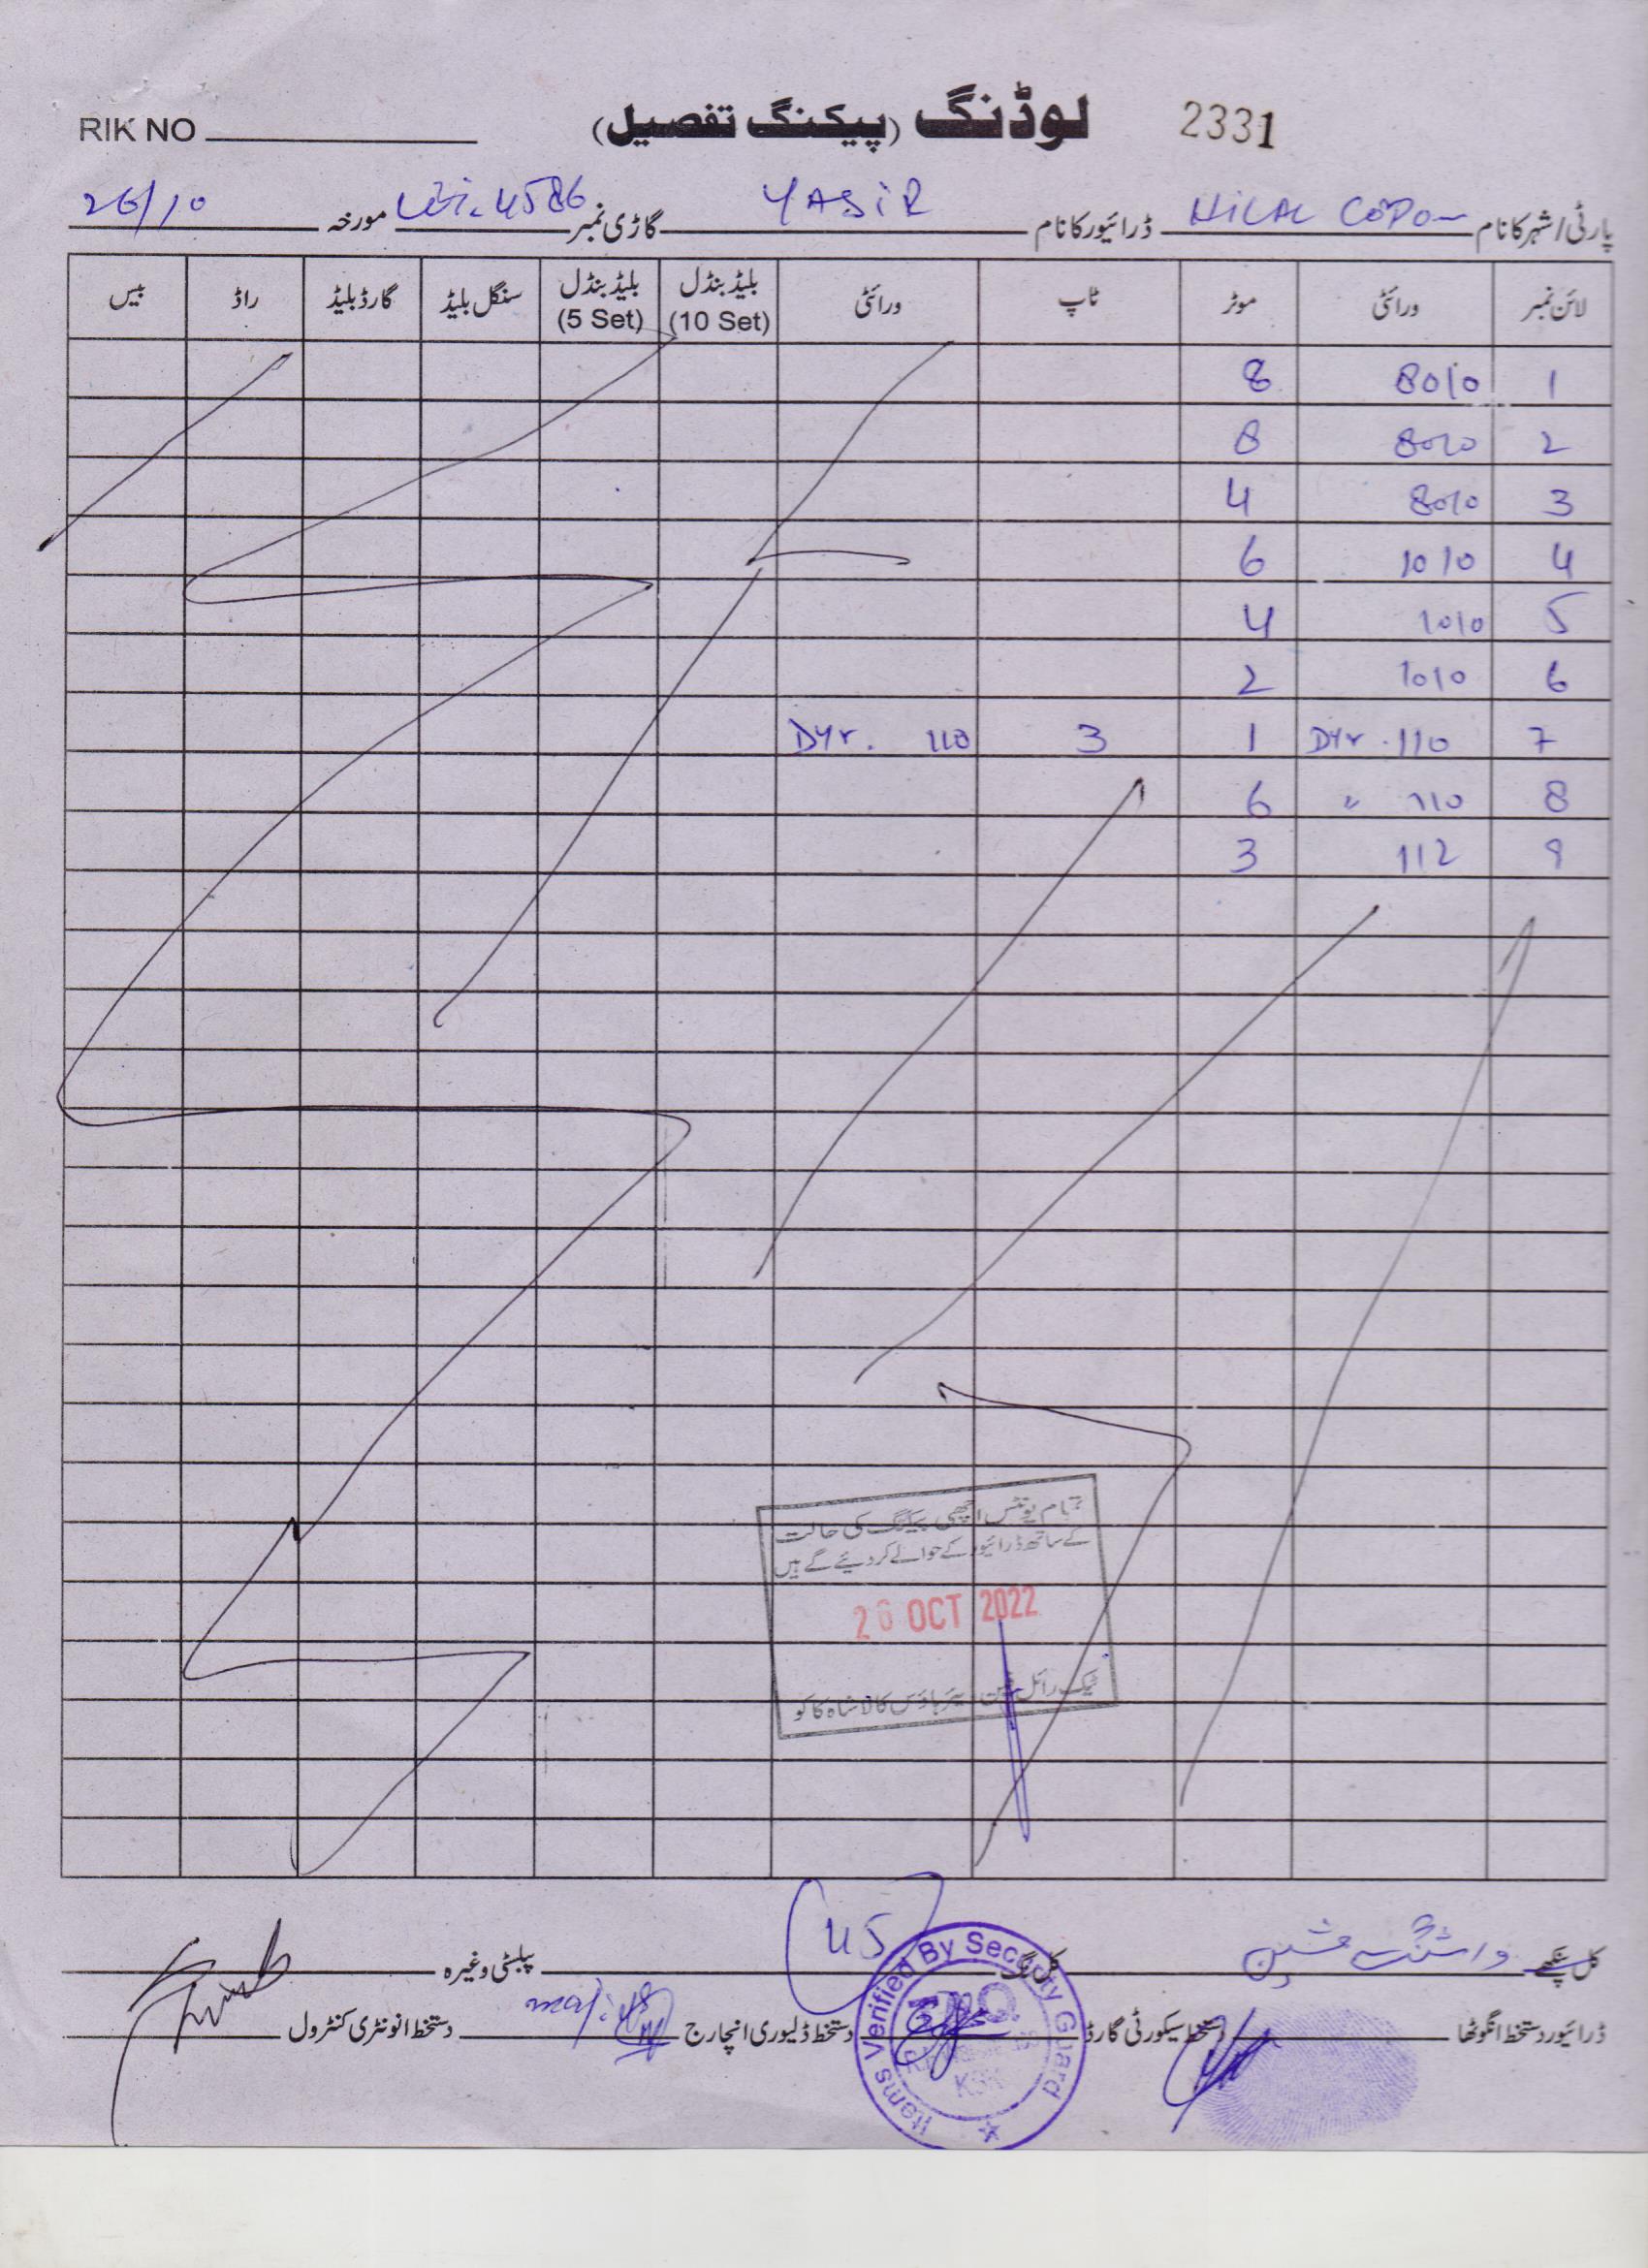 RIK NO لوڈنگ (پیکنگ تفصیل) 2331
پارٹی/شہر کا نام HILAL ڈرائیور کا نام YASIR گاڑی نمبر 4586 مورخہ 26/10
لائن نمبر ورائٹی موٹر ٹاپ ورائٹی بلیڈ بنڈل (10 Set) بلیڈ بنڈل (5 Set) سنگل بلیڈ گارڈ بلیڈ راڈ بیس
1 8010 8
2 8010 8
3 8010 4
4 1010 6
5 1010 4
6 1010 2
7 Dyr. 110 1 3 Dyr. 110
8 〃 110 6
9 112 3
تمام یونٹس اچھی پیکنگ کی حالت
کے ساتھ ڈرائیور کے حوالے کر دیئے گئے ہیں
26 OCT 2022
کالا شاہ کاکو
کل پنکھے واشنگ مشین کل 45 پبلسٹی وغیرہ
ڈرائیور دستخط انگوٹھا دستخط سیکورٹی گارڈ دستخط ڈلیوری انچارج دستخط انونٹری کنٹرول
Items Verified By Security Guard
KSK